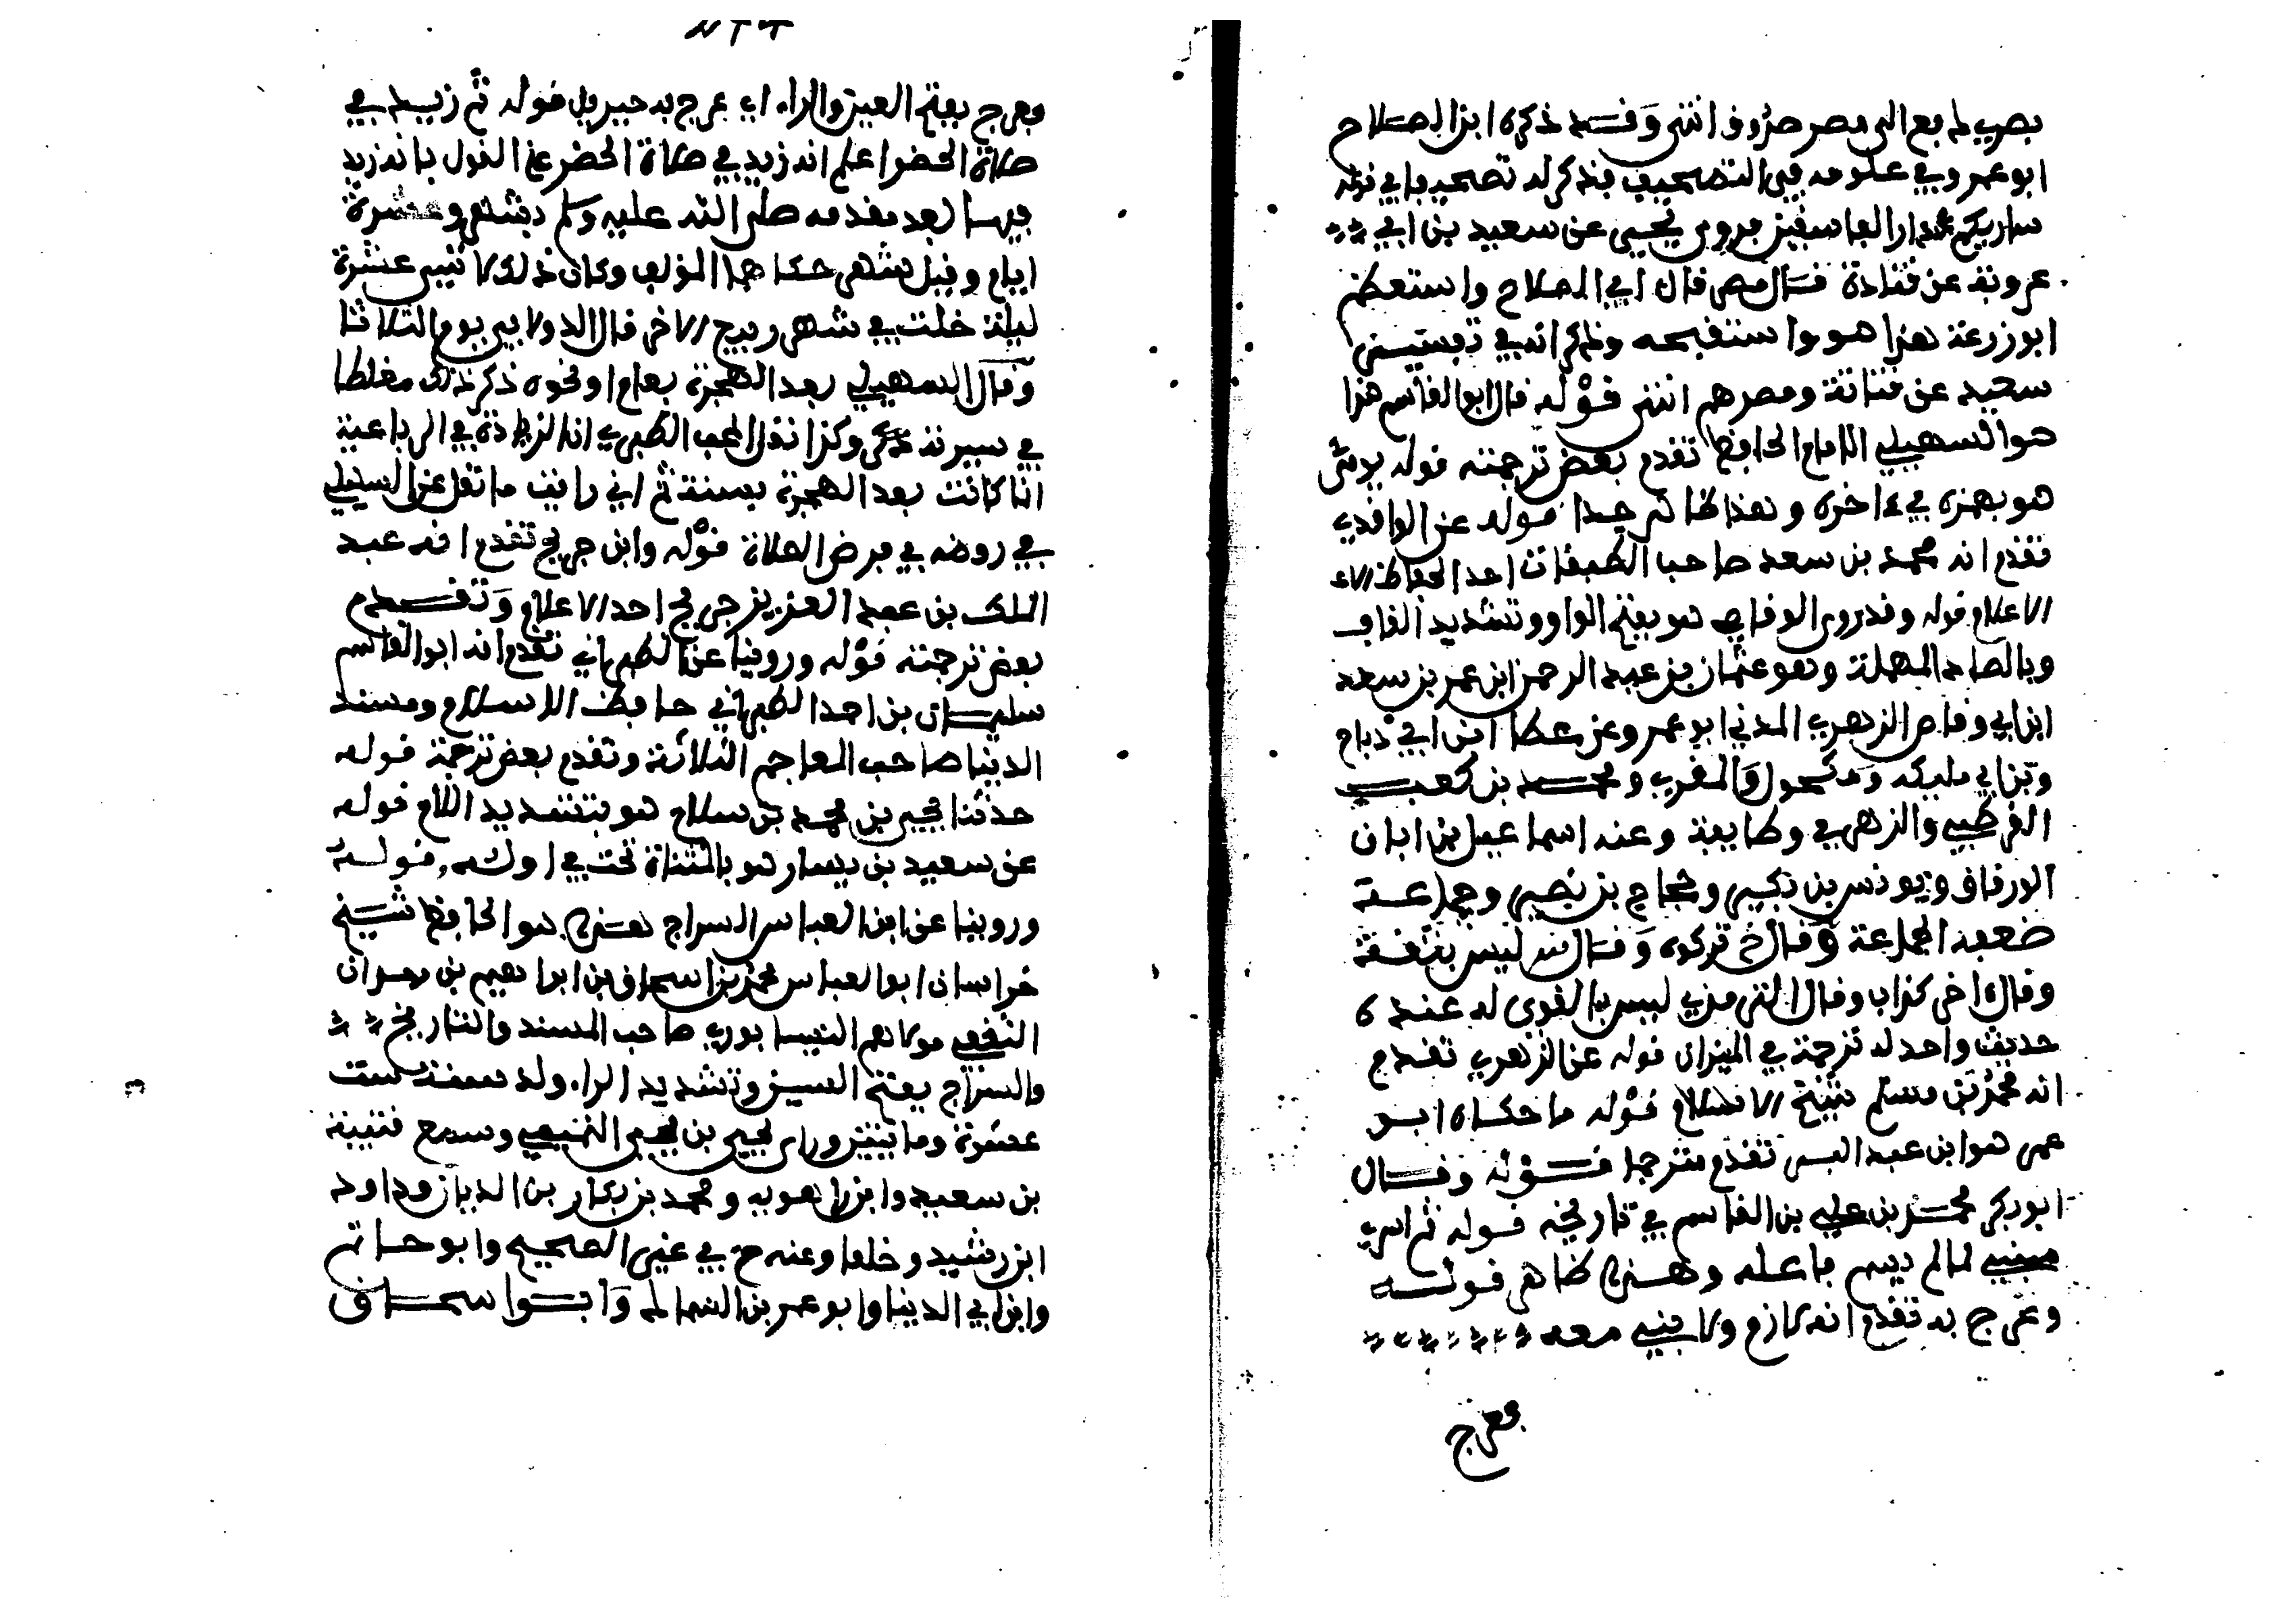 بصرى لم يقع الى مصر حذوف انتهى وقد ذكره ابن الصلاح
ابو عمرو في علومه في التصحيف فذكر له تصحيفا في قوله
ساريكم دار الفاسقين فروى يحيى عن سعيد بن ابي
عروبة عن قتادة قال مصر قال ابن الصلاح واستعظم
ابو زرعة هذا هو واستقبحه وذكر انه في تفسير
سعيد عن قتادة ومصرهم انتهى قوله قال ابو القاسم هذا
هو السهيلي الامام الحافظ تقدم بعض ترجمته قوله
هو بهمزة في ءاخره وهذا ظاهر جدا قوله عن الواقدي
تقدم انه محمد بن سعد صاحب الطبقات احد الحفاظ الاء
الاعلام قوله وقد روى الوقاصي هو بفتح الواو وتشديد القاف
وبالصاد المهملة وهو عثمان بن عبد الرحمن ابن عمر بن سعد
ابن ابي وقاص الزهري المدني ابو عمرو عن عطا ابن ابي رباح
وبن ابي مليكه ومكحول والمقبري ومحمد بن كعب
القرظي والزهري وطايفة وعنه اسماعيل بن ابان
الوراق ويونس بن بكير وحجاج بن نصير وجماعة
ضعفه الجماعة وقال خ تركوه وقال س ليس بثقة
وقال اخر كذاب وقال الترمذي ليس بالقوي له عنده
حديث واحد له ترجمة في الميزان قوله عن الزهري تقدم
انه محمد بن مسلم شيخ الاسلام قوله ما حكاه ابو
عمر هو ابن عبد البر تقدم مترجما قوله وقال
ابو بكر محمد بن علي بن القاسم في تاريخه قوله ثم اسري
مبني لما لم يسم فاعله وهذا ظاهر قوله
وعرج به تقدم انه لازم ولا بني معه
فعرج
فعرج بفتح العين والراء اي عرج به جبريل قوله ثم زيد في
صلاة الحضر اعلم انه زيد في صلاة الحضر على القول بانه زيد
فيها بعد مقدمه صلى الله عليه وسلم بشهر وعشرة
ايام وقيل بشهر حكاهما المؤلف وكان ذلك لاثنتي عشرة
ليلة خلت في شهر ربيع الاخر قال الدولابي يوم الثلاثا
وقال السهيلي بعد الهجرة بعام او نحوه ذكر ذلك مغلطا
في سيرته وكذا نقل المحب الطبري ان الزيادة في الرباعية
انا كانت بعد الهجرة بسنة ثم اني رايت ما نقل عن السهيلي
في روضه في فرض الصلاة قوله وابن جريج تقدم انه عبد
الملك بن عبد العزيز جريج احد الاعلام وتقدم
بعض ترجمته قوله وروينا عن الطبراني تقدم انه ابو القاسم
سليمان بن احمد الطبراني حافظ الاسلام ومسند
الدنيا صاحب المعاجم الثلاثة وتقدم بعض ترجمة قوله
حدثنا يحيى بن محمد بن سلام هو بتشديد اللام قوله
عن سعيد بن يسار هو بالمثناة تحت في اوله قوله
وروينا عن ابن العباس السراج هذا هو الحافظ شيخ
خراسان ابو العباس محمد بن اسحاق بن ابراهيم بن مهران
الثقفي مولاهم النيسابوري صاحب المسند والتاريخ
والسراج بفتح السين وتشديد الراء ولد سنة ست
عشرة وماتيين وراى يحيى بن يحيى التميمي وسمع قتيبة
بن سعيد وابن راهويه ومحمد بن بكار بن الريان وداود
ابن رشيد وخلقا وعنه خ في غير الصحيح وابو حاتم
وابن ابي الدنيا وابو عمر بن السماك وابو اسحاق